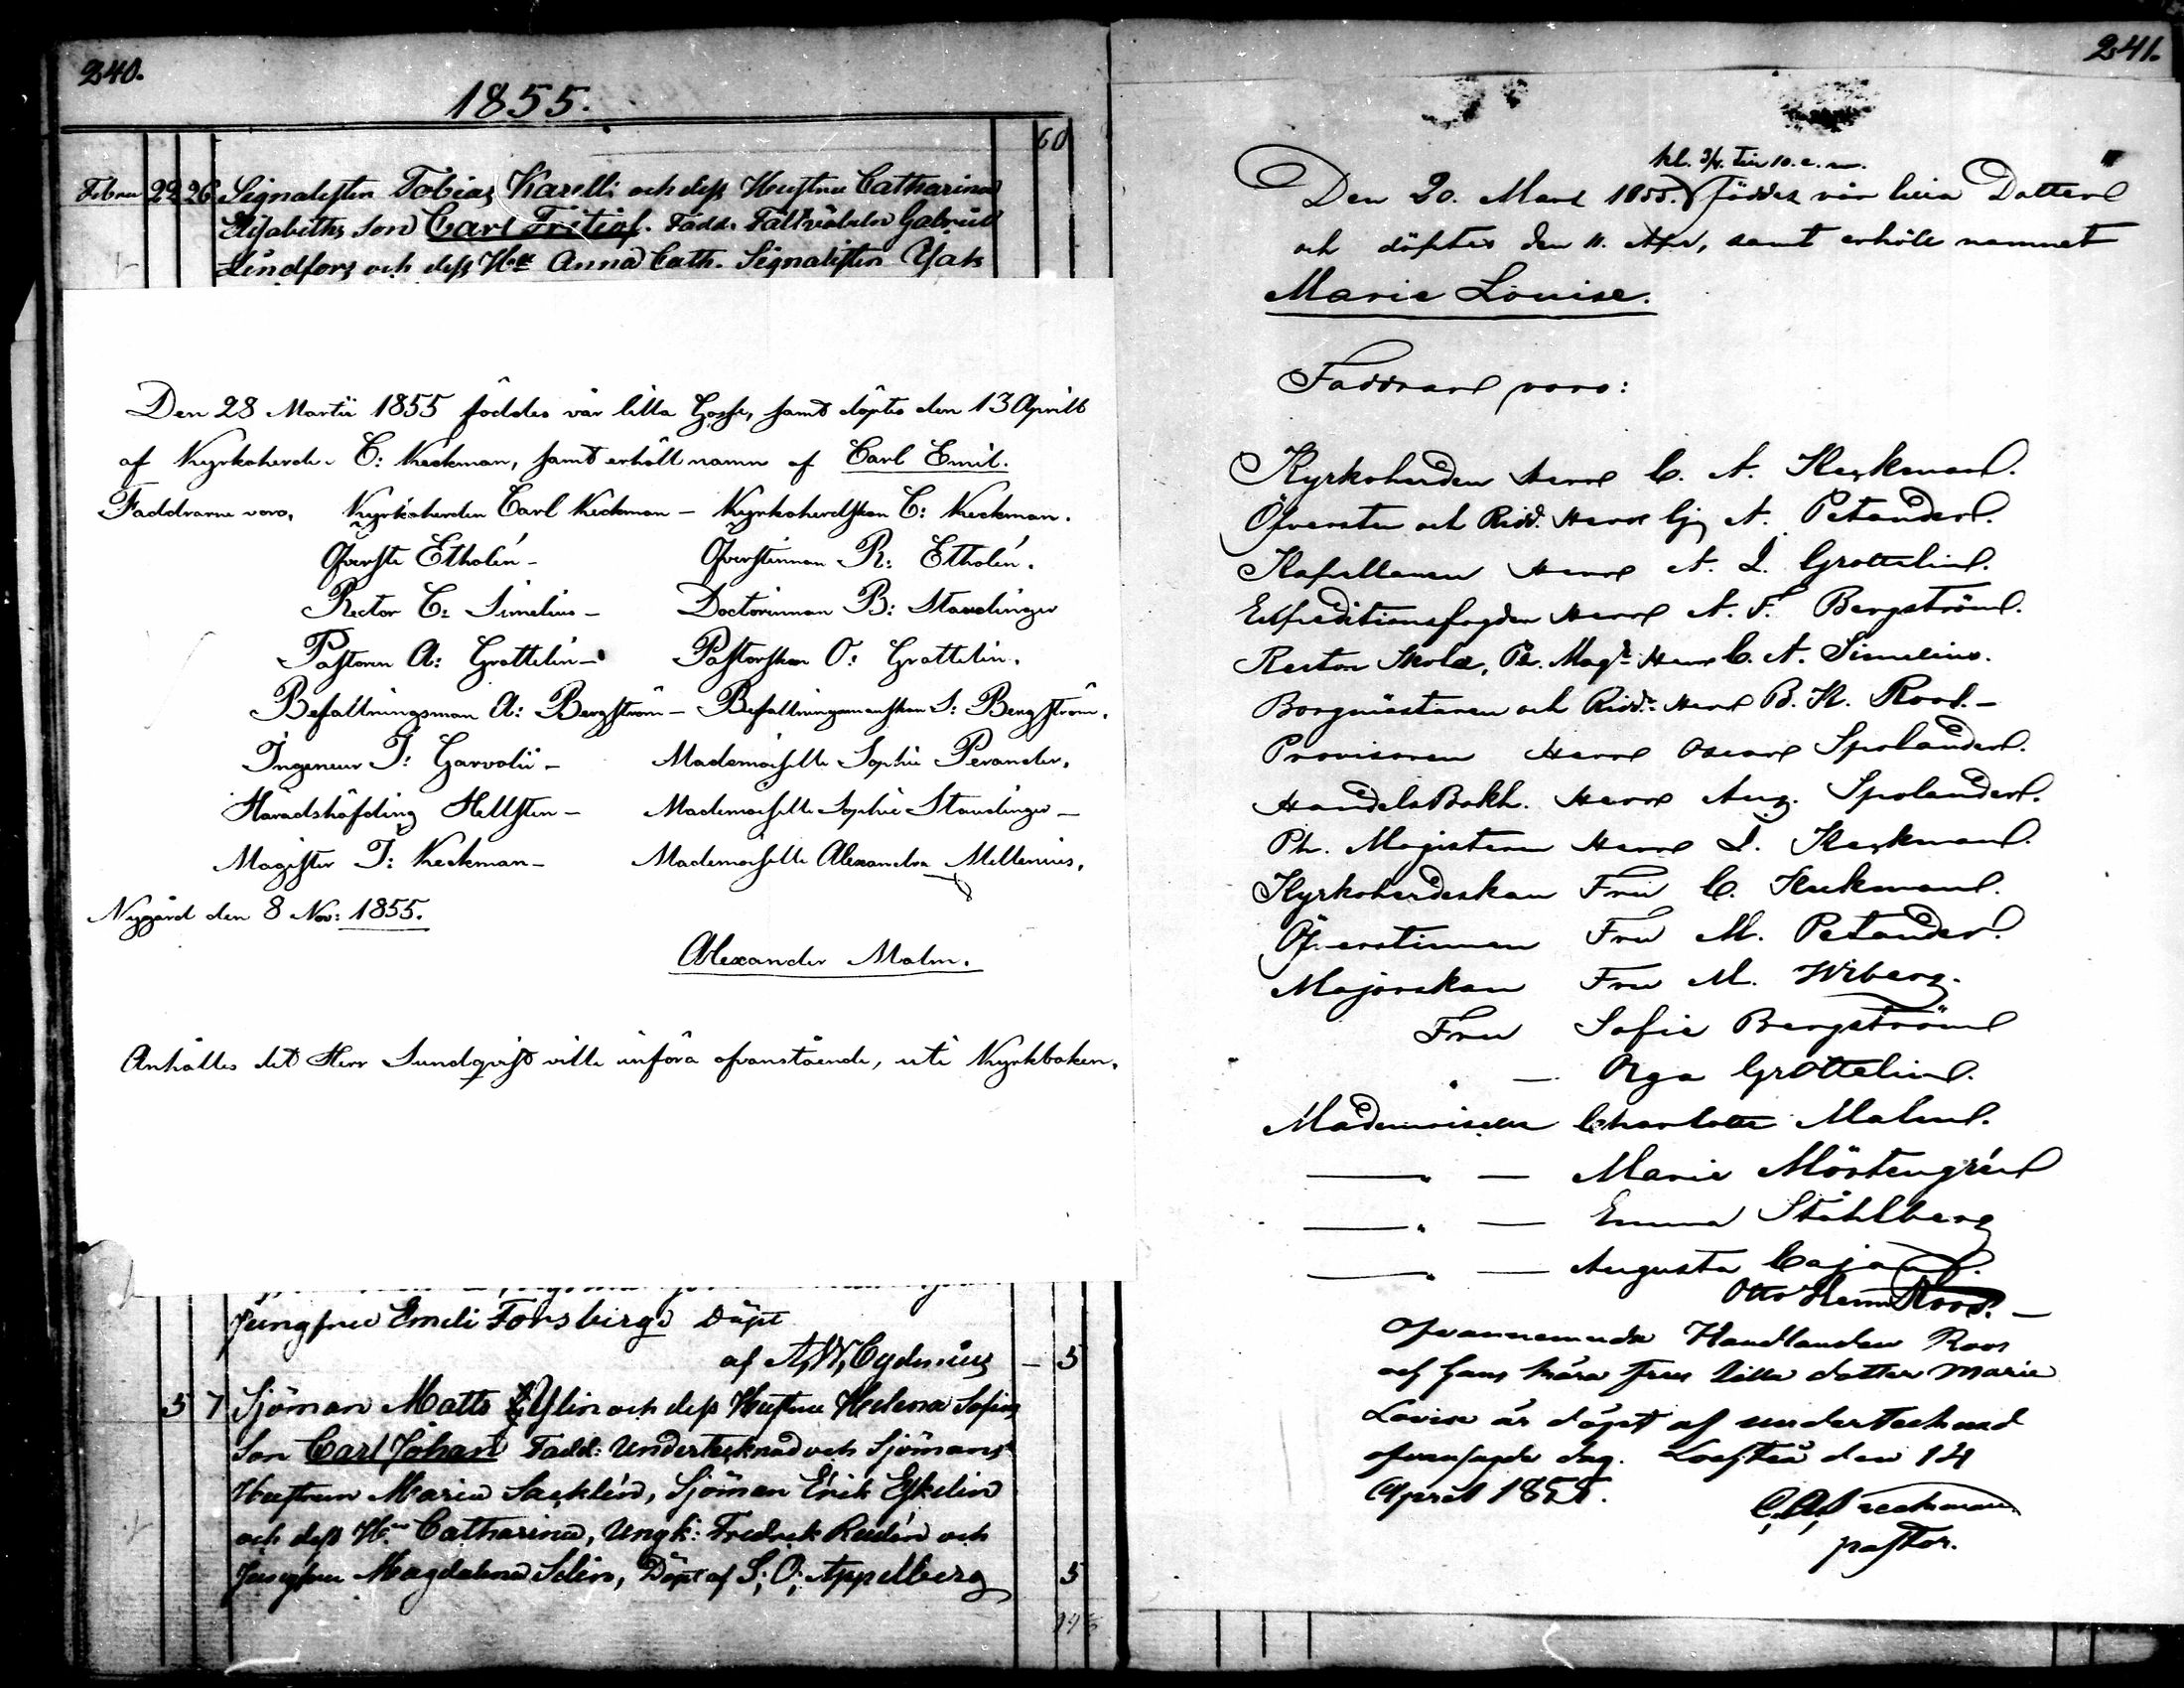 240.
1855.
60
Febru 22 26 Signalisten Tobias Karelli och dess Hustru Catharina
Elisabeths Son Carl Fritiof. Fadd. Fältväbeln Gabriel
Lindfors och dess Hu Anna Cath. Signalisten
Den 28 Martii 1855 föddes vår lilla Gosse, samt döptes den 13 Aprill
af Kyrkoherde C: Keckman, samt erhöll namn af Carl Emil.
Faddrarne voro, Kyrkoherden Carl Keckman – Kyrkoherdskan C: Keckman.
Öfverste Etholén – Öfverstinnan R: Etholén.
Rector C: Simelius – Doctorinnan B: Staudinger
Pastoren A: Grottelin – Pastorskan O: Grottelin.
Befallningsman A: Bergström – Befallningsmanskan S: Bergström.
Ingeneur I: Garvolii – Mademoiselle Sophie Perander.
Häradshöfding Hellsten – Mademoiselle Sophie Staudinger –
Magister I: Keckman – Mademoiselle Alexandra Mellenius.
Nygård den 8 Nov: 1855.
Alexander Malm.
Anhålles det Herr Sundqvist ville införa ofvanstående, uti Kyrkboken.
Jungfru Emeli Forsberg. Döpt
af A, W, Cygnæus – 5
5 7 Sjöman Matts Ylin och dess Hustru Helena Sofias
Son Carl Johan Fadd: Undertecknad och Sjömans
Hustrun Maria Sacklén, Sjöman Erik Eskelin
och dess Hu Catharina, Ungk: Fredrek Rudén och
Jungfru Magdalena Selin, Döpt af S; O; Appelberg 5
241.
kl. 3/4. till 10. e. m.
Den 20. Mars 1855. föddes vår lilla Dotter
och döptes den 11. Apr, samt erhöll namnet
Marie Louise.
Faddrar voro:
Kyrkoherden Herr C. A. Keckman.
Öfversten och Ridd. Herr A. Petander.
Kapellanen Herr A. L. Grottelin.
Expeditionsfogden Herr A. F. Bergström.
Rector Schol, Ph. Magr Herr C. A. Simelius.
Borgmästaren och Ridd. Herr B. H. Roos. –
Provisoren Herr Oscar Spolander.
Handels Bokh. Herr Aug. Spolander.
Ph. Magistern Herr I. Keckman.
Kyrkoherdeskan Fru C. Keckman.
Öfverstinnan Fru M. Petander.
Majorskan Fru M. Wiberg.
Fru Sofie Bergström
" — Olga Grottelin.
Mademoiselle Charlotte Malm.
— " — Marie Mörtengrén
— " — Emma Ståhlberg
— " — Augusta Cajan.
Otto Herm Roos. –
Ofvannemnda Handlanden Roos
och hans kära frus lilla dotter Marie
Lovise är döpt af undertecknad
ofvansagde dag. Lochteå den 14
April 1855.
C. A. Keckman
pastor.